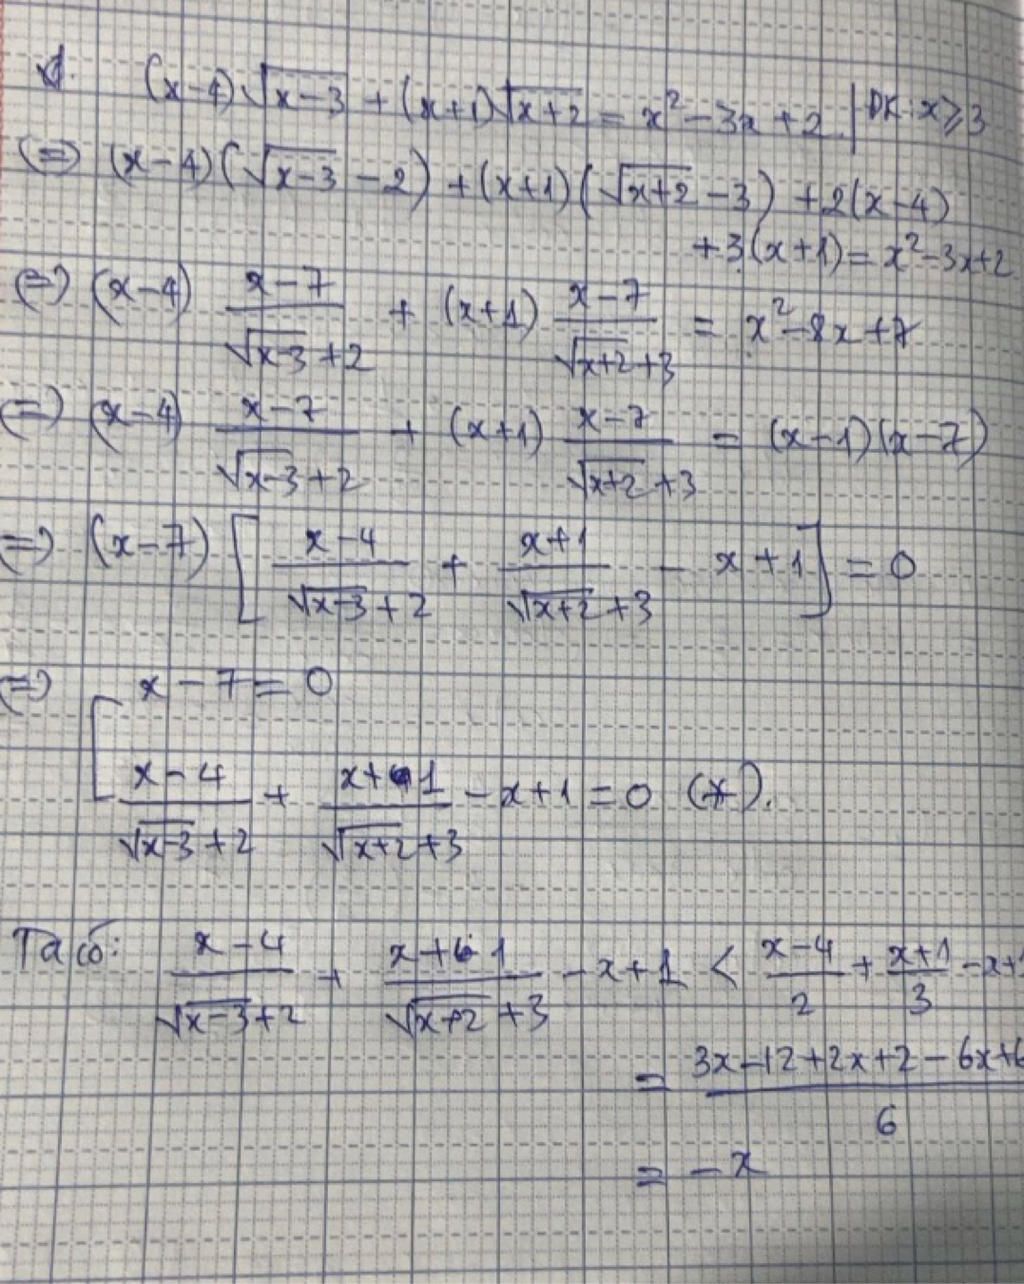 1. (x-4)√(x-3) + (x+1)√(x+2) = x² - 3x + 2 | ĐK: x ≥ 3
(=) (x-4)(√(x-3) - 2) + (x+1)(√(x+2) - 3) + 2(x-4)
+ 3(x+1) = x² - 3x + 2
(=) (x-4) (x-7)/(√(x-3) + 2) + (x+1) (x-7)/(√(x+2) + 3) = x² - 8x + 7
(=) (x-4) (x-7)/(√(x-3) + 2) + (x+1) (x-7)/(√(x+2) + 3) = (x-1)(x-7)
(=) (x-7) [ (x-4)/(√(x-3) + 2) + (x+1)/(√(x+2) + 3) - x + 1 ] = 0
(=) [ x - 7 = 0
(x-4)/(√(x-3) + 2) + (x+1)/(√(x+2) + 3) - x + 1 = 0 (*).
Ta có: (x-4)/(√(x-3) + 2) + (x+1)/(√(x+2) + 3) - x + 1 < (x-4)/2 + (x+1)/3 - x +
= (3x - 12 + 2x + 2 - 6x + 6)/6
= -x